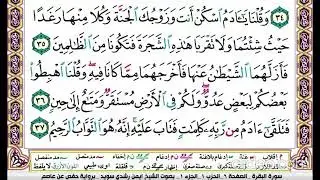 ٣٤
وَقُلْنَا يَٰٓـَٔادَمُ ٱسْكُنْ أَنتَ وَزَوْجُكَ ٱلْجَنَّةَ وَكُلَا مِنْهَا رَغَدًا
حَيْثُ شِئْتُمَا وَلَا تَقْرَبَا هَٰذِهِ ٱلشَّجَرَةَ فَتَكُونَا مِنَ ٱلظَّٰلِمِينَ
٣٥ فَأَزَلَّهُمَا ٱلشَّيْطَٰنُ عَنْهَا فَأَخْرَجَهُمَا مِمَّا كَانَا فِيهِ وَقُلْنَا ٱهْبِطُوا۟
بَعْضُكُمْ لِبَعْضٍ عَدُوٌّ وَلَكُمْ فِى ٱلْأَرْضِ مُسْتَقَرٌّ وَمَتَٰعٌ إِلَىٰ حِينٍ
٣٦ فَتَلَقَّىٰٓ ءَادَمُ مِن رَّبِّهِۦ كَلِمَٰتٍ فَتَابَ عَلَيْهِ إِنَّهُۥ هُوَ ٱلتَّوَّابُ ٱلرَّحِيمُ ٣٧
سورة البقرة - الصفحة ٦ الجزء ١ بصوت الشيخ أيمن رشدي سويد - برواية حفص عن عاصم